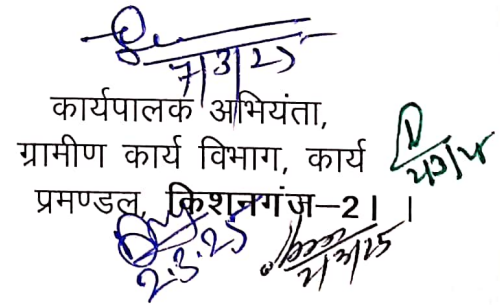 7/3/25
कार्यपालक अभियंता,
ग्रामीण कार्य विभाग, कार्य
प्रमण्डल, किशनगंज–2। ।
2.3.25